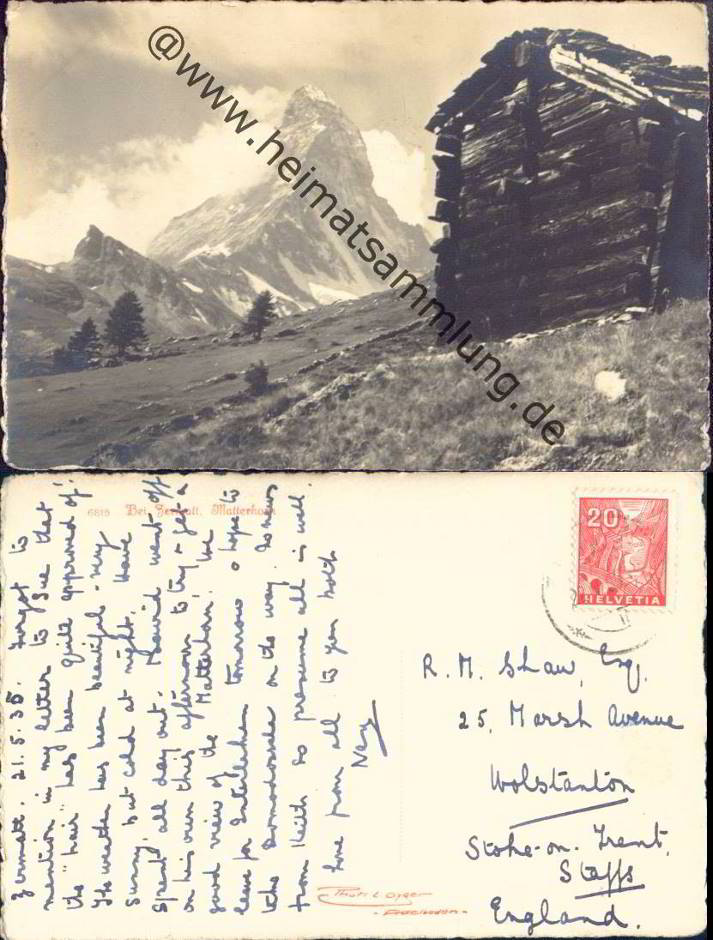 @www.heimatsammlung.de
6815 Bei Zermatt. Matterhorn
20
HELVETIA
Zermatt. 21.5.35. Forgot to
mention in my letter to Sue that
the "hair" has been quite approved of!
The weather has been beautiful - very
Sunny but cold at night. Have
Spent all day out. went off
on his own this afternoon to try & get a
good view of the Matterhorn! We
leave for Interlaken tomorrow & hope to
take Domodossola on the way. No news
from Keith so presume all is well.
Love from all to you both
R. M. Shaw, Esq.
25, Marsh Avenue
Wolstanton
Stoke-on-Trent.
Staffs
England.